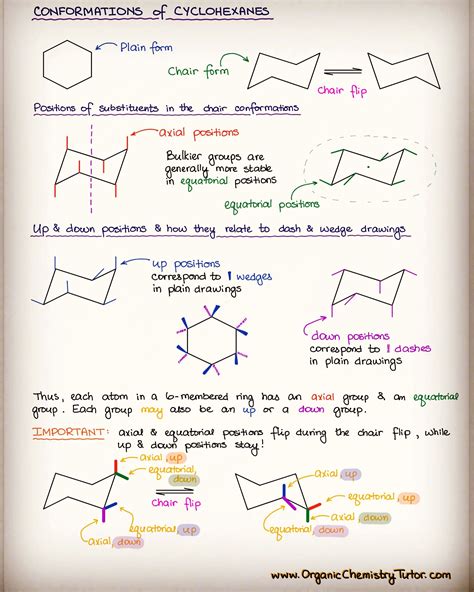 CONFORMATIONS of CYCLOHEXANES
Plain form
Chair form
Chair flip
Positions of substituents in the chair conformations
axial positions
Bulkier groups are
generally more stable
in equatorial positions
equatorial positions
Up & down positions & how they relate to dash & wedge drawings
up positions
correspond to wedges
in plain drawings
down positions
correspond to dashes
in plain drawings
Thus, each atom in a 6-membered ring has an axial group & an equatorial
group. Each group may also be an up or a down group.
IMPORTANT: axial & equatorial positions flip during the chair flip, while
up & down positions stay!
axial, up
equatorial,
down
Chair flip
equatorial, up
axial, down
axial, up
equatorial, up
axial, down
equatorial, down
www.OrganicChemistryTutor.com